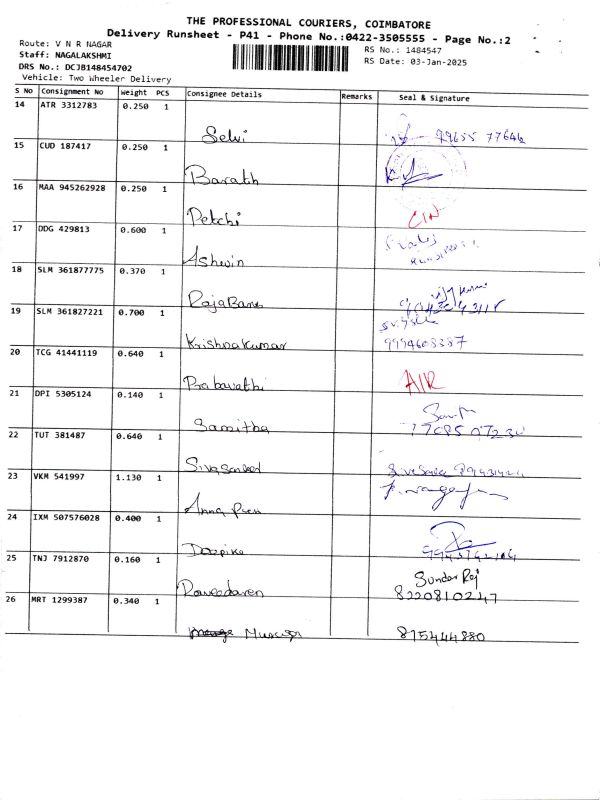 THE PROFESSIONAL COURIERS, COIMBATORE
Delivery Runsheet - P41 - Phone No.:0422-3505555 - Page No.:2
Route: V N R NAGAR
RS No.: 1484547
Staff: NAGALAKSHMI
RS Date: 03-Jan-2025
DRS No.: DCJB148454702
Vehicle: Two Wheeler Delivery
S No Consignment No Weight PCS Consignee Details Remarks Seal & Signature
14 ATR 3312783 0.250 1
Selvi 99655 77646
15 CUD 187417 0.250 1
Barath
16 MAA 945262928 0.250 1
Petchi CIN
17 DDG 429813 0.600 1
Ashwin
18 SLM 361877775 0.370 1
19 SLM 361827221 0.700 1
Krishnakumar 9994608387
20 TCG 41441119 0.640 1
Prabavathi AIR
21 DPI 5305124 0.140 1
Samitha
22 TUT 381487 0.640 1
23 VKM 541997 1.130 1
Anna
24 IXM 507576028 0.400 1
Deepika
25 TNJ 7912870 0.160 1
Sundar Raj
8220810247
26 MRT 1299387 0.340 1
815444880